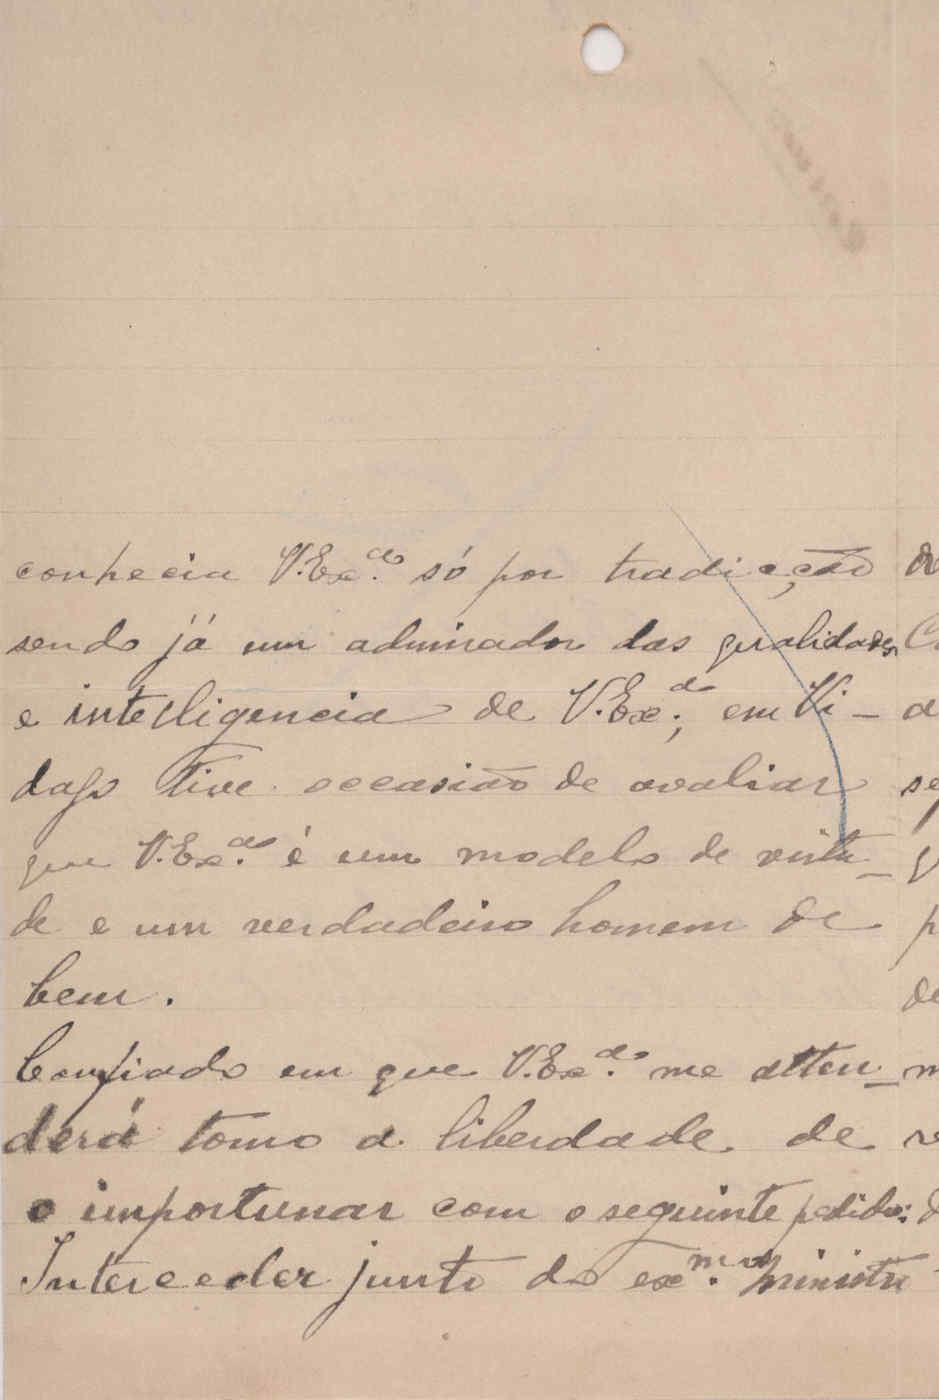 conhecia V.Ex.cia só por tradicção
sendo já um admirador das qualidades
e intelligencia de V.Ex.a; em Vi-
dago tive occasião de avaliar
que V.Ex.cia é um modelo de virtu-
de e um verdadeiro homem de
bem.
Confiado em que V.Ex.cia me atten-
derá tomo a liberdade de
o importunar com o seguinte pedido:
Interceder junto do exmo. ministro